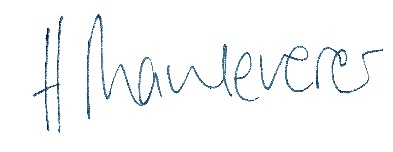 H Mauleverer